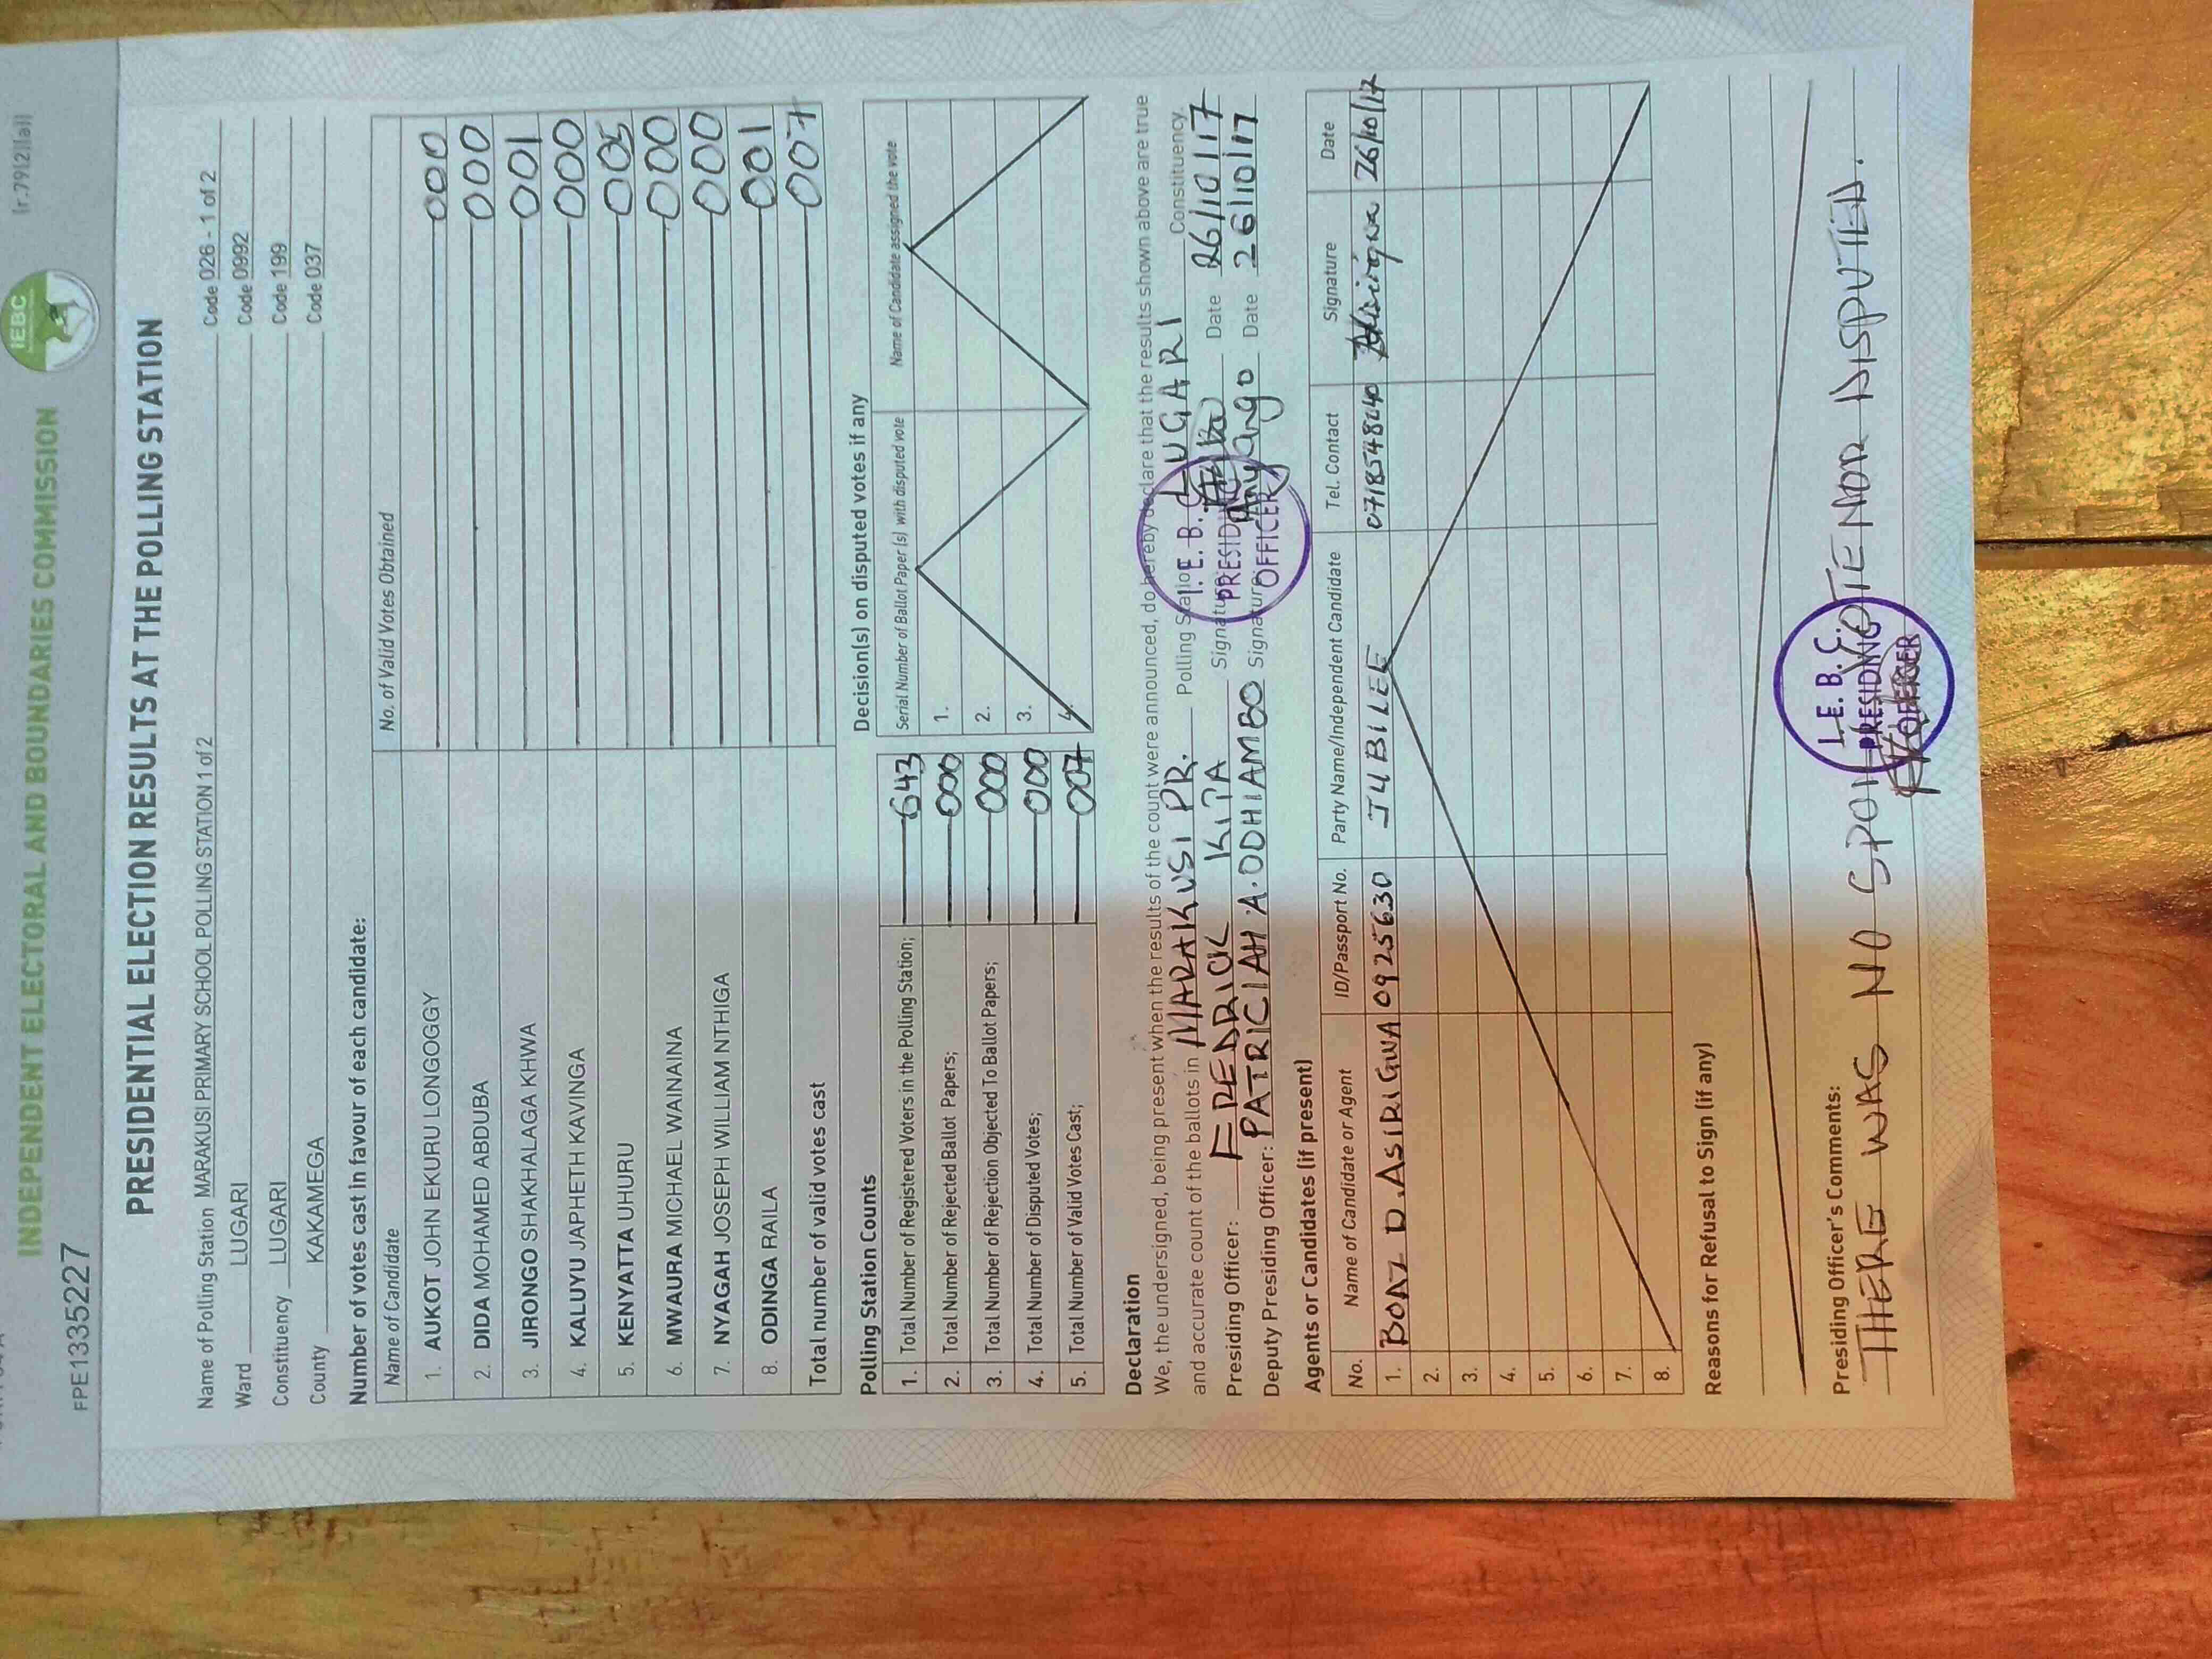 [r.79(2)(a)]
IEBC
INDEPENDENT ELECTORAL AND BOUNDARIES COMMISSION
FPE1335227
PRESIDENTIAL ELECTION RESULTS AT THE POLLING STATION
Name of Polling Station MARAKUSI PRIMARY SCHOOL POLLING STATION 1 of 2 Code 026 - 1 of 2
Ward LUGARI Code 0992
Constituency LUGARI Code 199
County KAKAMEGA Code 037
Number of votes cast in favour of each candidate:
Name of Candidate No. of Valid Votes Obtained
1. AUKOT JOHN EKURU LONGOGGY 000
2. DIDA MOHAMED ABDUBA 000
3. JIRONGO SHAKHALAGA KHWA 001
4. KALUYU JAPHETH KAVINGA 000
5. KENYATTA UHURU 005
6. MWAURA MICHAEL WAINAINA 000
7. NYAGAH JOSEPH WILLIAM NTHIGA 000
8. ODINGA RAILA 001
Total number of valid votes cast 007
Polling Station Counts
1. Total Number of Registered Voters in the Polling Station; 643
2. Total Number of Rejected Ballot Papers; 000
3. Total Number of Rejection Objected To Ballot Papers; 000
4. Total Number of Disputed Votes; 000
5. Total Number of Valid Votes Cast; 007
Decision(s) on disputed votes if any
Serial Number of Ballot Paper (s) with disputed vote Name of Candidate assigned the vote
1.
2.
3.
4.
Declaration
We, the undersigned, being present when the results of the count were announced, do hereby declare that the results shown above are true
and accurate count of the ballots in MARAKUSI PR. Polling Station LUGARI Constituency.
Presiding Officer: FREDRICK KITA Signature Date 26/10/17
Deputy Presiding Officer: PATRICIAH A. ODHIAMBO Signature Anyango Date 26/10/17
I. E. B. C.
PRESIDING
OFFICER
Agents or Candidates (if present)
No. Name of Candidate or Agent ID/Passport No. Party Name/Independent Candidate Tel. Contact Signature Date
1. BOAZ D. ASIRIGWA 0925630 JUBILEE 0718548240 26/10/17
2.
3.
4.
5.
6.
7.
8.
Reasons for Refusal to Sign (if any)
Presiding Officer's Comments:
THERE WAS NO SPOILT VOTE NOR DISPUTED.
I. E. B. C.
PRESIDING
OFFICER